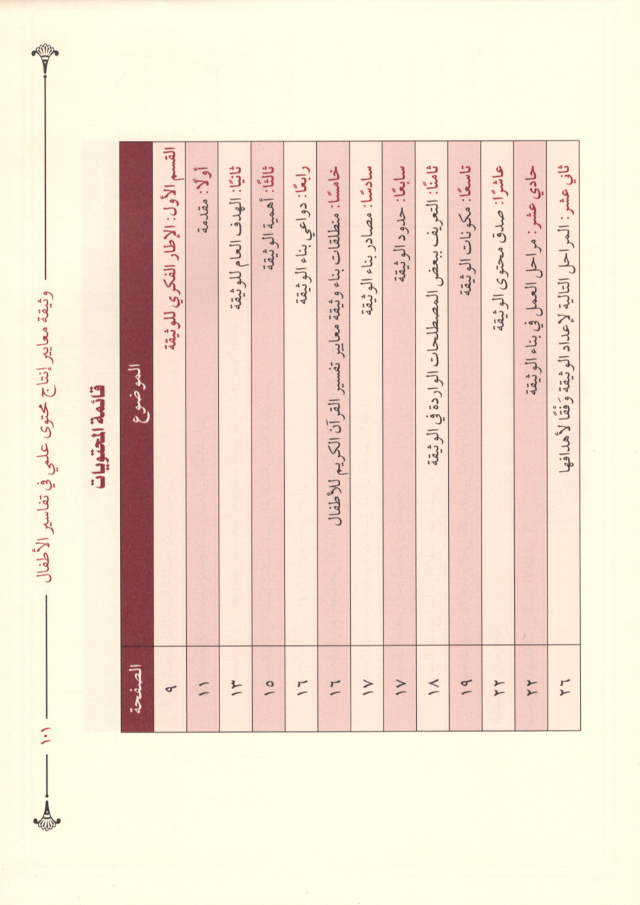 وثيقة معايير إنتاج محتوى علمي في تفاسير الأطفال ١٠١
قائمة المحتويات
الموضوع الصفحة
القسم الأول: الإطار الفكري للوثيقة ٩
أولًا: مقدمة ١١
ثانيًا: الهدف العام للوثيقة ١٣
ثالثًا: أهمية الوثيقة ١٥
رابعًا: دواعي بناء الوثيقة ١٦
خامسًا: منطلقات بناء وثيقة معايير تفسير القرآن الكريم للأطفال ١٦
سادسًا: مصادر بناء الوثيقة ١٧
سابعًا: حدود الوثيقة ١٧
ثامنًا: التعريف ببعض المصطلحات الواردة في الوثيقة ١٨
تاسعًا: مكونات الوثيقة ١٩
عاشرًا: صدق محتوى الوثيقة ٢٢
حادي عشر: مراحل العمل في بناء الوثيقة ٢٢
ثاني عشر: المراحل التالية لإعداد الوثيقة وَفْقًا لأهدافها ٢٦